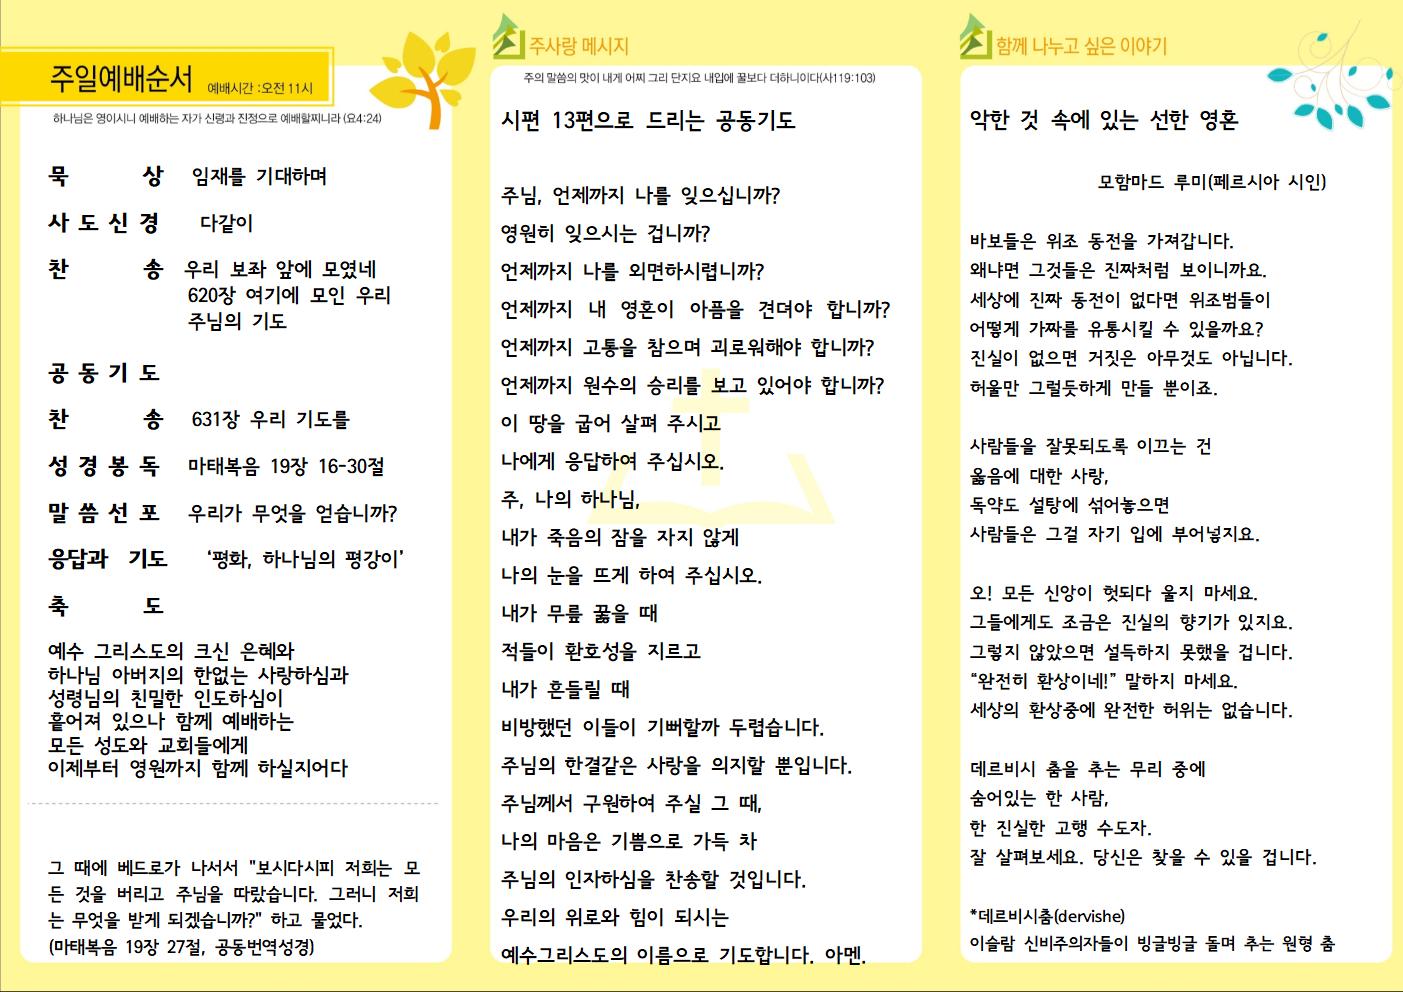 주일예배순서 예배시간 :오전 11시
하나님은 영이시니 예배하는 자가 신령과 진정으로 예배할찌니라 (요4:24)
묵 상 임재를 기대하며
사 도 신 경 다같이
찬 송 우리 보좌 앞에 모였네
620장 여기에 모인 우리
주님의 기도
공 동 기 도
찬 송 631장 우리 기도를
성 경 봉 독 마태복음 19장 16-30절
말 씀 선 포 우리가 무엇을 얻습니까?
응답과 기도 ‘평화, 하나님의 평강이’
축 도
예수 그리스도의 크신 은혜와
하나님 아버지의 한없는 사랑하심과
성령님의 친밀한 인도하심이
흩어져 있으나 함께 예배하는
모든 성도와 교회들에게
이제부터 영원까지 함께 하실지어다
그 때에 베드로가 나서서 "보시다시피 저희는 모
든 것을 버리고 주님을 따랐습니다. 그러니 저희
는 무엇을 받게 되겠습니까?" 하고 물었다.
(마태복음 19장 27절, 공동번역성경)
주사랑 메시지
주의 말씀의 맛이 내게 어찌 그리 단지요 내입에 꿀보다 더하니이다(사119:103)
시편 13편으로 드리는 공동기도
주님, 언제까지 나를 잊으십니까?
영원히 잊으시는 겁니까?
언제까지 나를 외면하시렵니까?
언제까지 내 영혼이 아픔을 견뎌야 합니까?
언제까지 고통을 참으며 괴로워해야 합니까?
언제까지 원수의 승리를 보고 있어야 합니까?
이 땅을 굽어 살펴 주시고
나에게 응답하여 주십시오.
주, 나의 하나님,
내가 죽음의 잠을 자지 않게
나의 눈을 뜨게 하여 주십시오.
내가 무릎 꿇을 때
적들이 환호성을 지르고
내가 흔들릴 때
비방했던 이들이 기뻐할까 두렵습니다.
주님의 한결같은 사랑을 의지할 뿐입니다.
주님께서 구원하여 주실 그 때,
나의 마음은 기쁨으로 가득 차
주님의 인자하심을 찬송할 것입니다.
우리의 위로와 힘이 되시는
예수그리스도의 이름으로 기도합니다. 아멘.
함께 나누고 싶은 이야기
악한 것 속에 있는 선한 영혼
모함마드 루미(페르시아 시인)
바보들은 위조 동전을 가져갑니다.
왜냐면 그것들은 진짜처럼 보이니까요.
세상에 진짜 동전이 없다면 위조범들이
어떻게 가짜를 유통시킬 수 있을까요?
진실이 없으면 거짓은 아무것도 아닙니다.
허울만 그럴듯하게 만들 뿐이죠.
사람들을 잘못되도록 이끄는 건
옳음에 대한 사랑,
독약도 설탕에 섞어놓으면
사람들은 그걸 자기 입에 부어넣지요.
오! 모든 신앙이 헛되다 울지 마세요.
그들에게도 조금은 진실의 향기가 있지요.
그렇지 않았으면 설득하지 못했을 겁니다.
“완전히 환상이네!” 말하지 마세요.
세상의 환상중에 완전한 허위는 없습니다.
데르비시 춤을 추는 무리 중에
숨어있는 한 사람,
한 진실한 고행 수도자.
잘 살펴보세요. 당신은 찾을 수 있을 겁니다.
*데르비시춤(dervishe)
이슬람 신비주의자들이 빙글빙글 돌며 추는 원형 춤